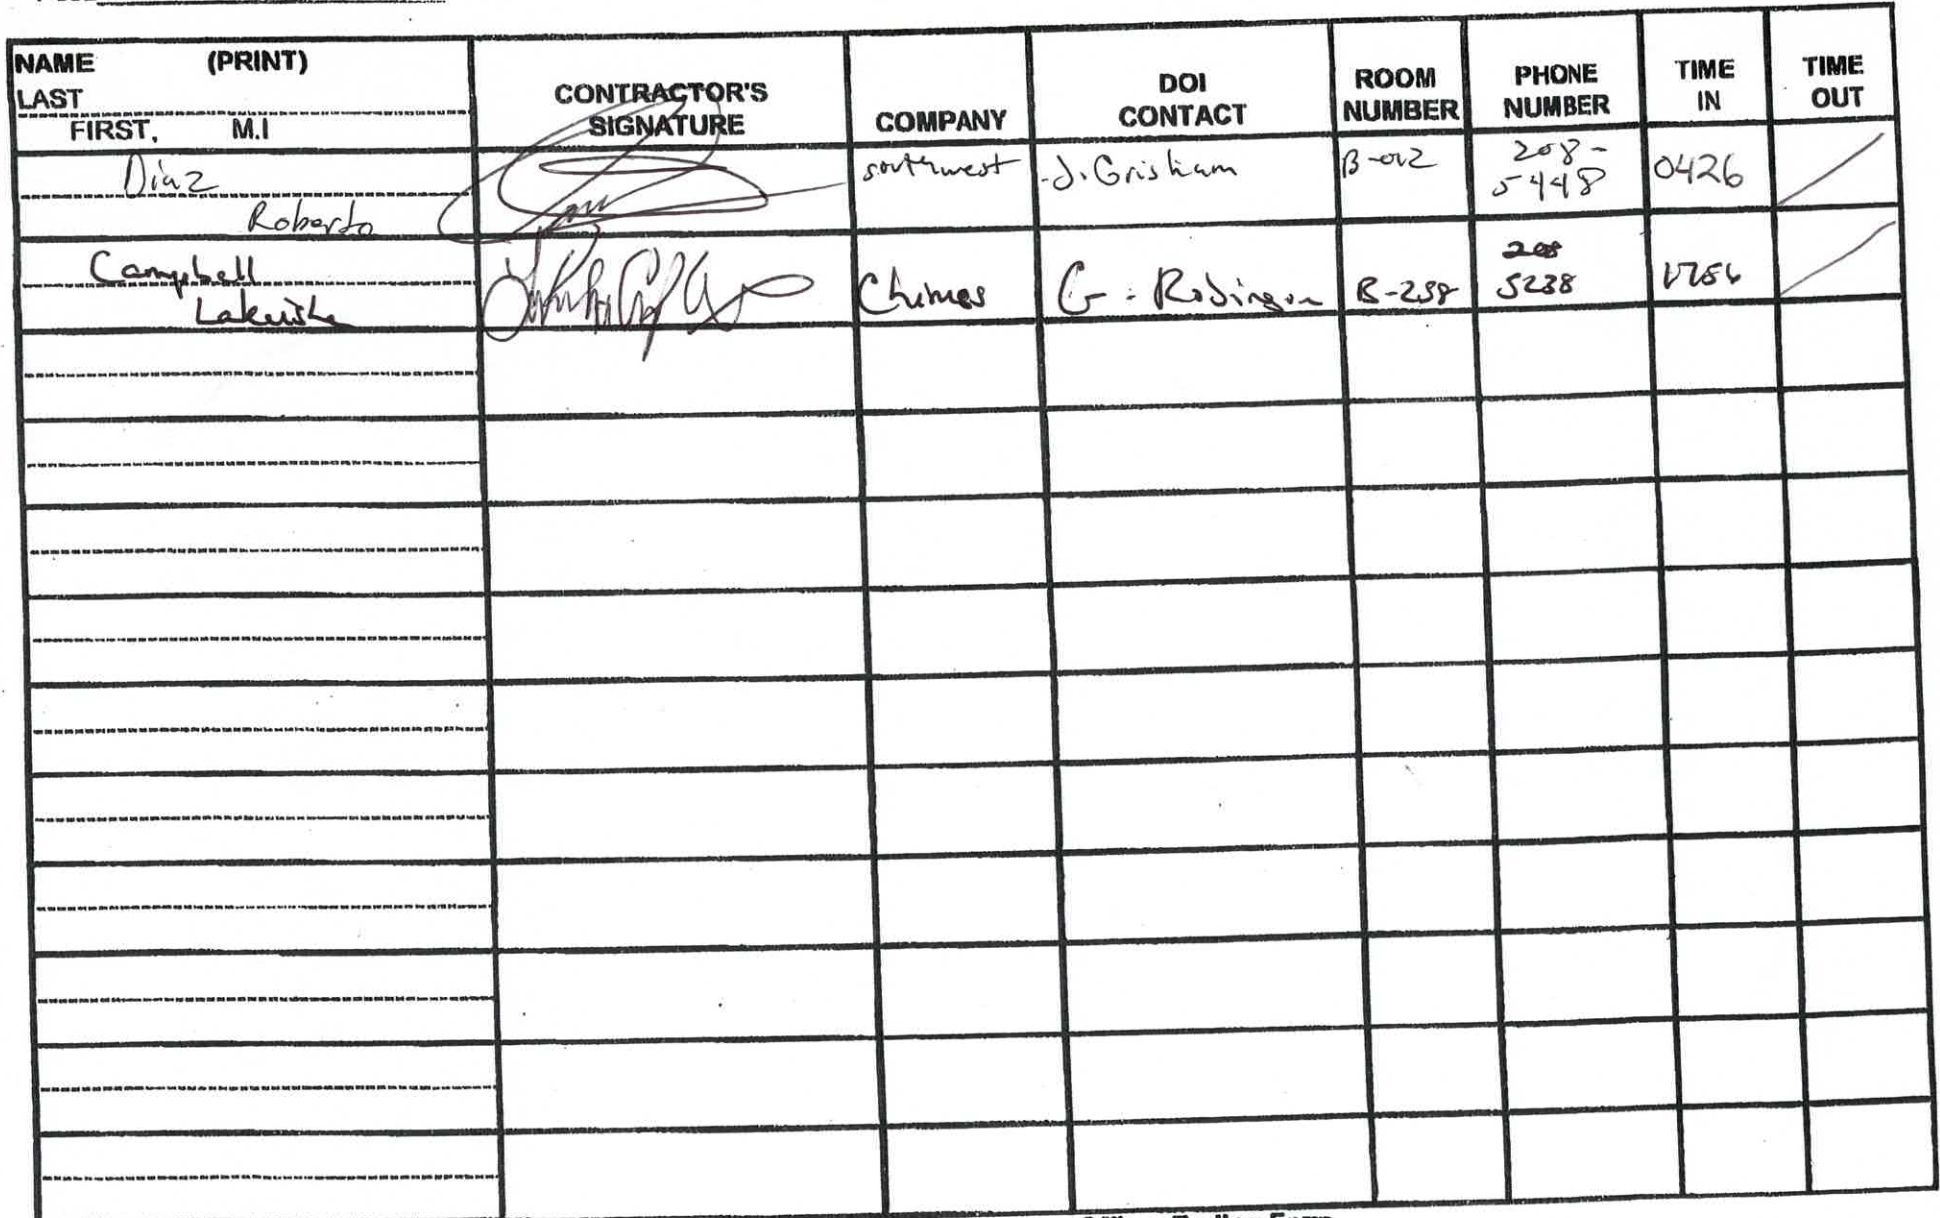 NAME (PRINT)
LAST
FIRST, M.I
CONTRACTOR'S
SIGNATURE
COMPANY
DOI
CONTACT
ROOM
NUMBER
PHONE
NUMBER
TIME
IN
TIME
OUT
Diaz
Roberto
southwest
J. Grisham
B-012
208-
5448
0426
Campbell
Lakeisha
Chimes
G. Robinson
B-238
208
5238